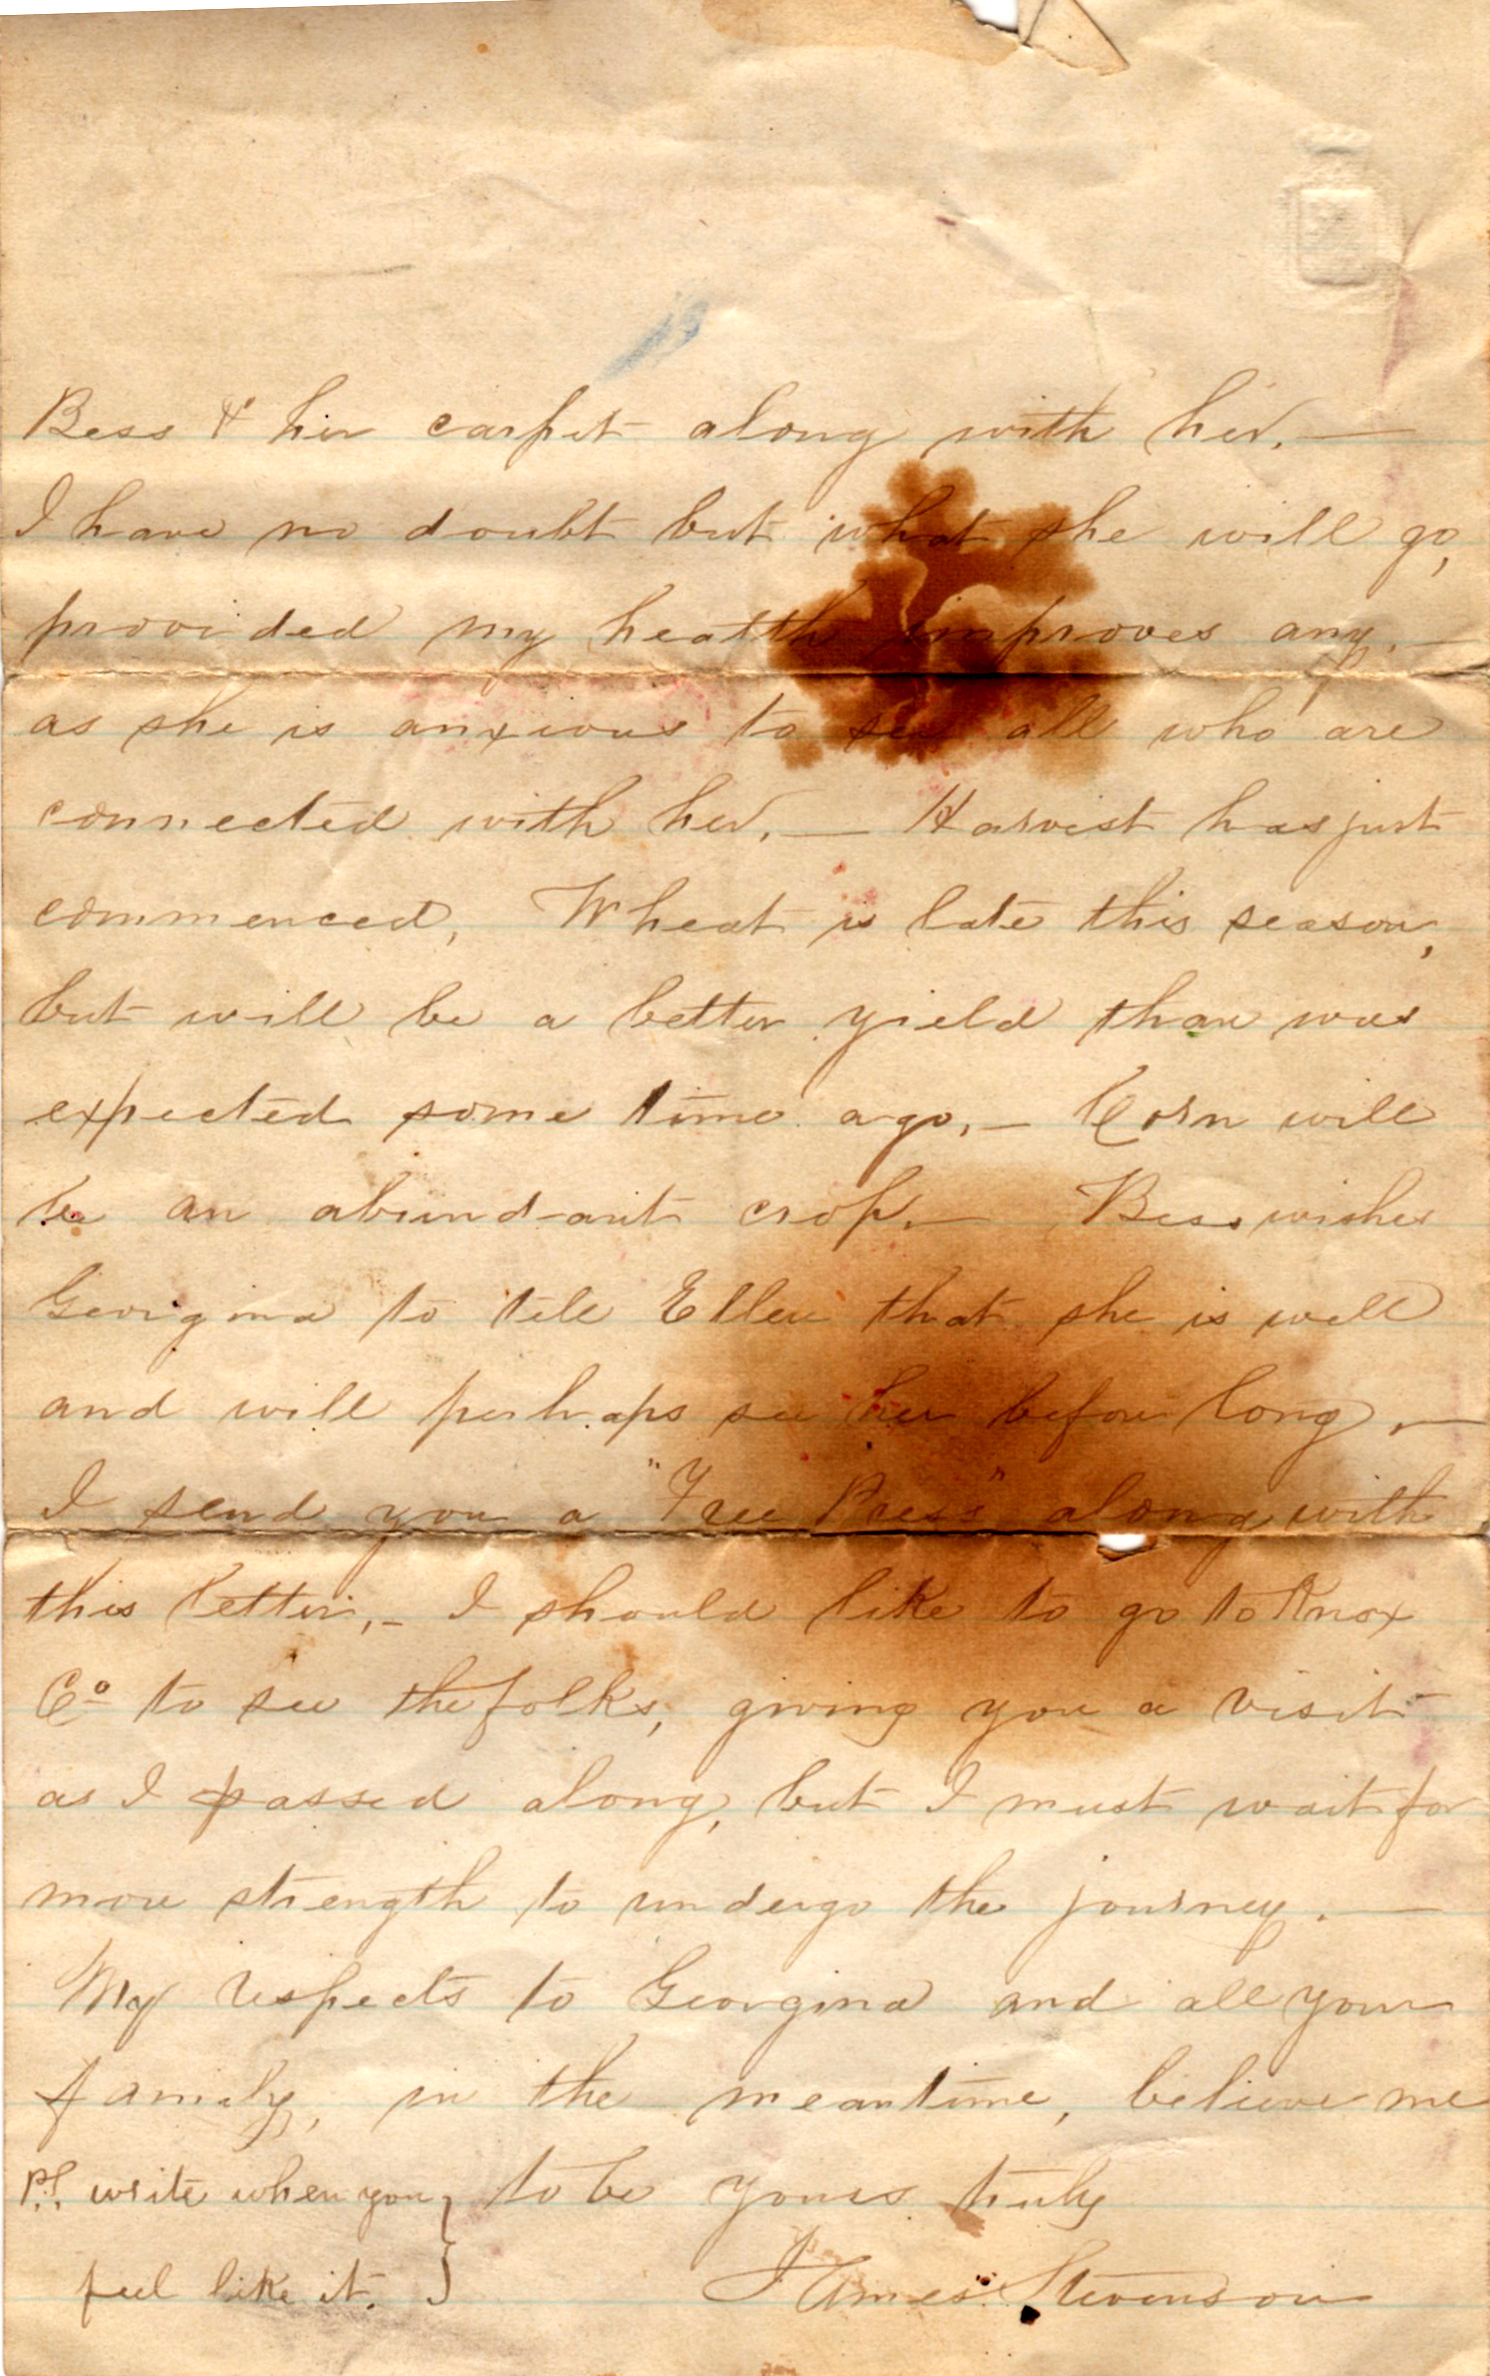 Bess & her carpet along with her. —
I have no doubt but what she will go,
provided my health improves any. —
as she is anxious to see all who are
connected with her. — Harvest has just
commenced, Wheat is late this season,
but will be a better yield than was
expected some time ago. — Corn will
be an abundant crop. — Bess wishes
Georgina to tell Ellen that she is well
and will perhaps see her before long. —
I send you a "Free Press" along with
this letter. — I should like to go to Knox
Co to see the folks, giving you a visit
as I passed along, but I must wait for
more strength to undergo the journey. —
My respects to Georgina and all your
family, in the meantime, believe me
to be yours truly
James Stevenson
P.S. write when you
feel like it.